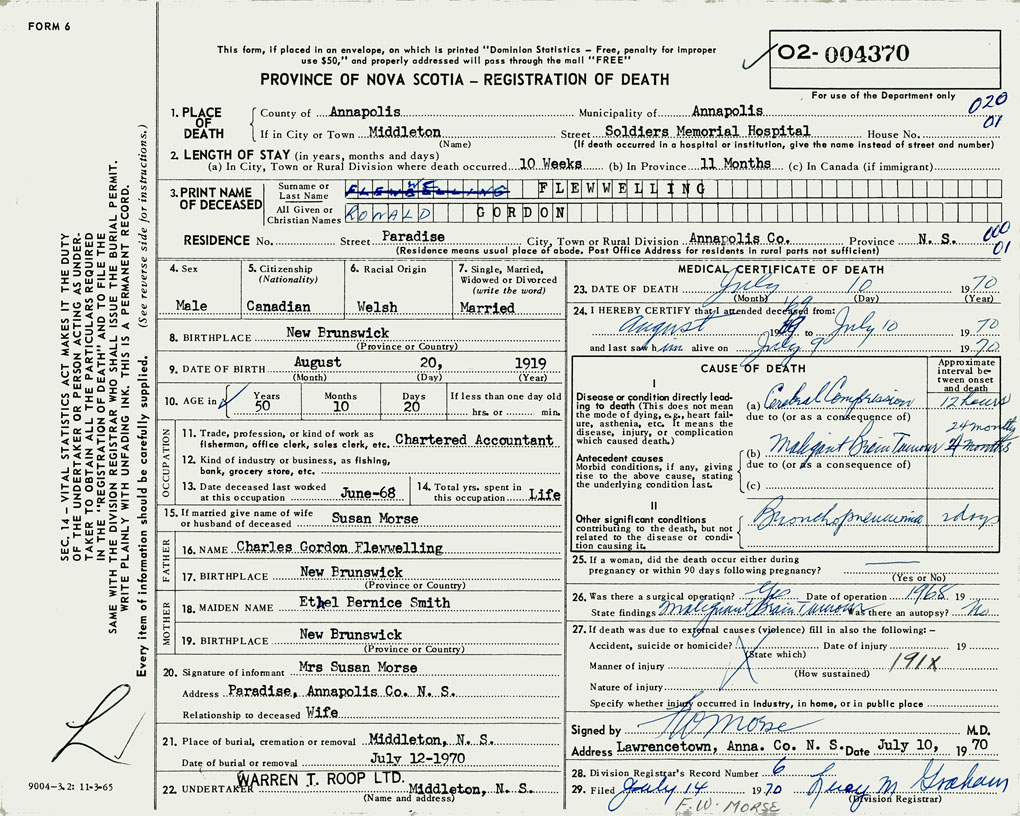 FORM 6
This form, if placed in an envelope, on which is printed "Dominion Statistics – Free, penalty for improper
use $50," and properly addressed will pass through the mail "FREE"
PROVINCE OF NOVA SCOTIA – REGISTRATION OF DEATH
02- 004370
For use of the Department only
020
01
1. PLACE OF DEATH
County of Annapolis Municipality of Annapolis
If in City or Town Middleton Street Soldiers Memorial Hospital House No.
(Name) (If death occurred in a hospital or institution, give the name instead of street and number)
2. LENGTH OF STAY (in years, months and days)
(a) In City, Town or Rural Division where death occurred 10 Weeks (b) In Province 11 Months (c) In Canada (if immigrant)
3. PRINT NAME OF DECEASED
Surname or Last Name FLEWWELLING
All Given or Christian Names RONALD GORDON
RESIDENCE No. Street Paradise City, Town or Rural Division Annapolis Co. Province N. S.
000
01
(Residence means usual place of abode. Post Office Address for residents in rural parts not sufficient)
4. Sex
Male
5. Citizenship (Nationality)
Canadian
6. Racial Origin
Welsh
7. Single, Married, Widowed or Divorced (write the word)
Married
8. BIRTHPLACE New Brunswick
(Province or Country)
9. DATE OF BIRTH August 20, 1919
(Month) (Day) (Year)
10. AGE in Years Months Days If less than one day old
50 10 20 hrs. or min.
OCCUPATION
11. Trade, profession, or kind of work as
fisherman, office clerk, sales clerk, etc. Chartered Accountant
12. Kind of industry or business, as fishing,
bank, grocery store, etc.
13. Date deceased last worked at this occupation June-68
14. Total yrs. spent in this occupation Life
15. If married give name of wife
or husband of deceased Susan Morse
FATHER
16. NAME Charles Gordon Flewwelling
17. BIRTHPLACE New Brunswick
(Province or Country)
MOTHER
18. MAIDEN NAME Ethel Bernice Smith
19. BIRTHPLACE New Brunswick
(Province or Country)
20. Signature of informant Mrs Susan Morse
Address Paradise, Annapolis Co. N. S.
Relationship to deceased Wife
21. Place of burial, cremation or removal Middleton, N. S.
Date of burial or removal July 12-1970
WARREN T. ROOP LTD.
22. UNDERTAKER Middleton, N. S.
(Name and address)
MEDICAL CERTIFICATE OF DEATH
23. DATE OF DEATH July 10 1970
(Month) (Day) (Year)
24. I HEREBY CERTIFY that I attended deceased from:
August 1969 to July 10 1970
and last saw him alive on July 9 1970.
CAUSE OF DEATH
Approximate interval between onset and death
I
Disease or condition directly leading to death (This does not mean the mode of dying, e.g., heart failure, asthenia, etc. It means the disease, injury, or complication which caused death.)
(a) Cerebral Compression 12 hours
due to (or as a consequence of)
24 months
(b) Malignant Brain Tumour
due to (or as a consequence of)
Antecedent causes
Morbid conditions, if any, giving rise to the above cause, stating the underlying condition last.
(c)
II
Other significant conditions
contributing to the death, but not related to the disease or condition causing it.
Bronchopneumonia 2 days
25. If a woman, did the death occur either during
pregnancy or within 90 days following pregnancy?
(Yes or No)
26. Was there a surgical operation? Yes Date of operation 1968 19
State findings Malignant Brain Tumour Was there an autopsy? No
27. If death was due to external causes (violence) fill in also the following: –
Accident, suicide or homicide? Date of injury 19
(State which)
Manner of injury 191X
(How sustained)
Nature of injury
Specify whether injury occurred in industry, in home, or in public place
Signed by Morse M.D.
Address Lawrencetown, Anna. Co. N. S. Date July 10, 1970
28. Division Registrar's Record Number 6
29. Filed July 14 1970 Lucy M Graham
(Division Registrar)
F. W. MORSE
SEC. 14 – VITAL STATISTICS ACT MAKES IT THE DUTY
OF THE UNDERTAKER OR PERSON ACTING AS UNDER-
TAKER TO OBTAIN ALL THE PARTICULARS REQUIRED
IN THE "REGISTRATION OF DEATH" AND TO FILE THE
SAME WITH THE DIVISION REGISTRAR WHO SHALL ISSUE THE BURIAL PERMIT.
WRITE PLAINLY WITH UNFADING INK. THIS IS A PERMANENT RECORD.
Every item of information should be carefully supplied. (See reverse side for instructions.)
9004-3.2: 11-3-65